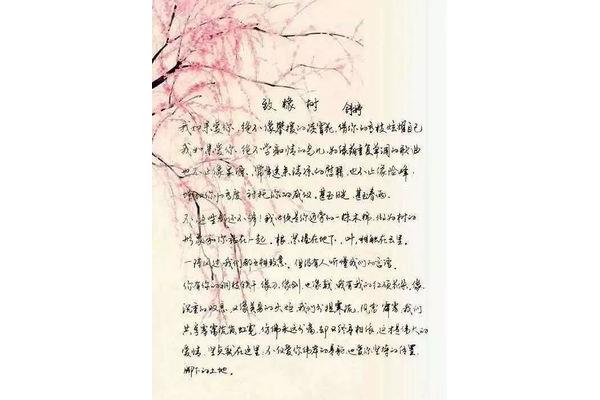 致橡树 舒婷
我如果爱你,绝不像攀援的凌霄花,借你的高枝炫耀自己
我如果爱你,绝不学痴情的鸟儿,为绿荫重复单调的歌曲
也不止像泉源,常年送来清凉的慰藉,也不止像险峰,
增加你的高度,衬托你的威仪。甚至日光,甚至春雨。
不,这些都还不够!我必须是你近旁的一株木棉,做为树的
形象和你站在一起。根,紧握在地下,叶,相触在云里。
一阵风过,我们都互相致意。但没有人听懂我们的言语。
你有你的铜枝铁干,像刀,像剑,也像戟,我有我的红硕花朵,像
沉重的叹息,又像英勇的火炬,我们分担寒流、风雷、霹雳,我们
共享雾霭流岚虹霓,仿佛永远分离,却又终身相依,这才是伟大的
爱情,坚贞就在这里:不仅爱你伟岸的身躯,也爱你坚持的位置,
脚下的土地。